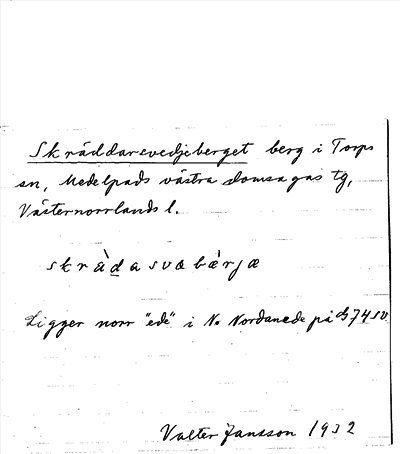 Skräddarsvedjeberget berg i Torps
sn, Medelpads västra domsagas tg,
Västernorrlands l.
skràdasvabàrjæ
Ligger norr "ede" i N. Nordanede på G74SV
Valter Jansson 1932